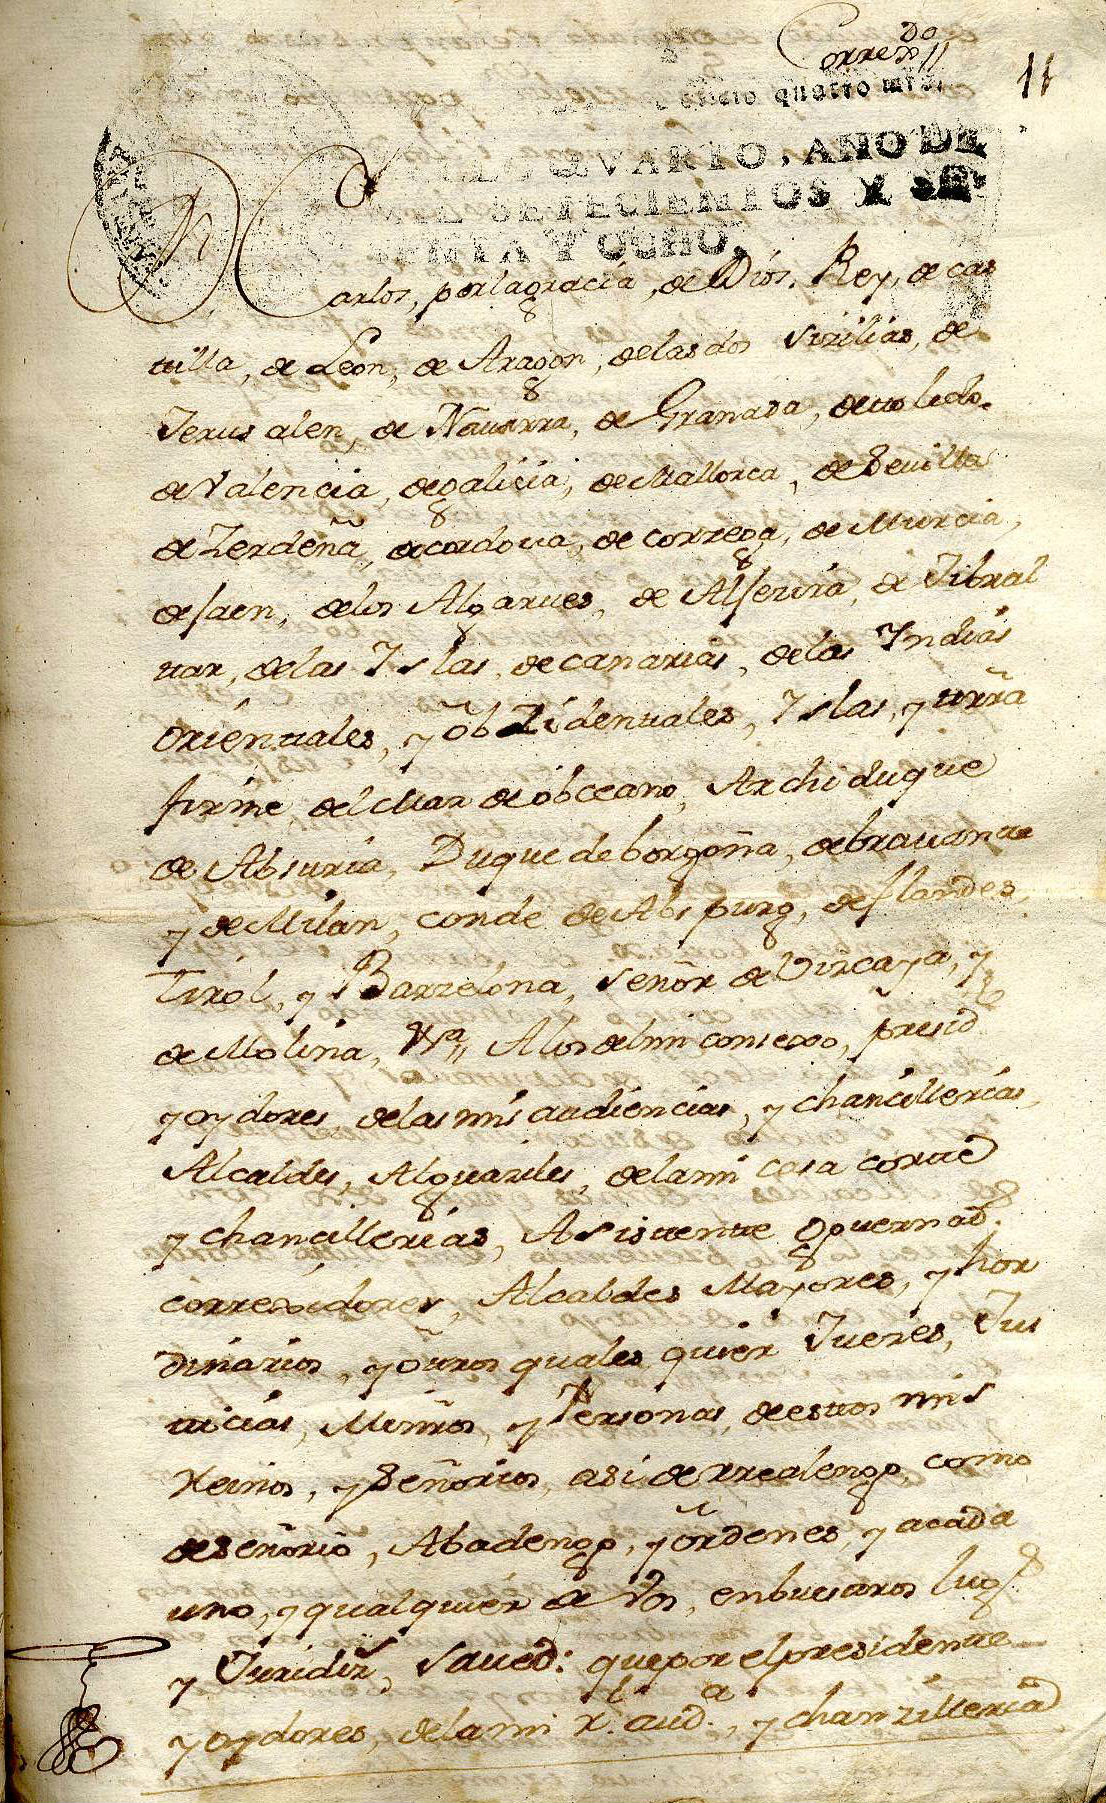 Correxdo
11
oficio quatro mrs.
SELLO QVARTO, AÑO DE
MIL SETECIENTOS Y SE-
SENTA Y OCHO.
Dn Carlos, por la gracia, de Dios, Rey, de cas
tilla, de Leon, de Aragon, de las dos Sizilias, de
Jerusalen, de Nauarra, de Granada, de toledo,
de Valencia, de galicia, de Mallorca, de Seuilla
de Zerdeña, de cordoua, de correga, de Murcia,
de Jaen, de los Algarues, de Alsecira, de Jibral
tar, de las Yslas, de canarias, de las Yndias
Orientales, y Obzidentales, Yslas, y trrã
firme, del Mar de obceano, Archiduque
de Absuria, Duque de borgoña, de brauante
y de Milan, conde de Abspurg, de flandes,
Tirol, y Barzelona, Señor de Vizcaya, y
de Molina, &ra,, A los del mi consexo, presidtes
y oydores, de las mis audiencias, y chancillerias,
Alcaldes, Alguaziles, de la mi casa corte
y chancillerias, Asistente Gouernadres
correxidores, Alcaldes Mayores, y hor
dinarios, y otros quales quier Juezes, Jus
ticias, Minros, y Personas, de estos mis
Reinos, y Señorios, asi de rrealengo, como
de señorio, Abadengo, y ordenes, y a cada
uno, y qualquier de Vos, en buestros lugs
y Juridizs, Saued: que por el presidente
y oydores, de la mi rl. auda., y chanzilleria